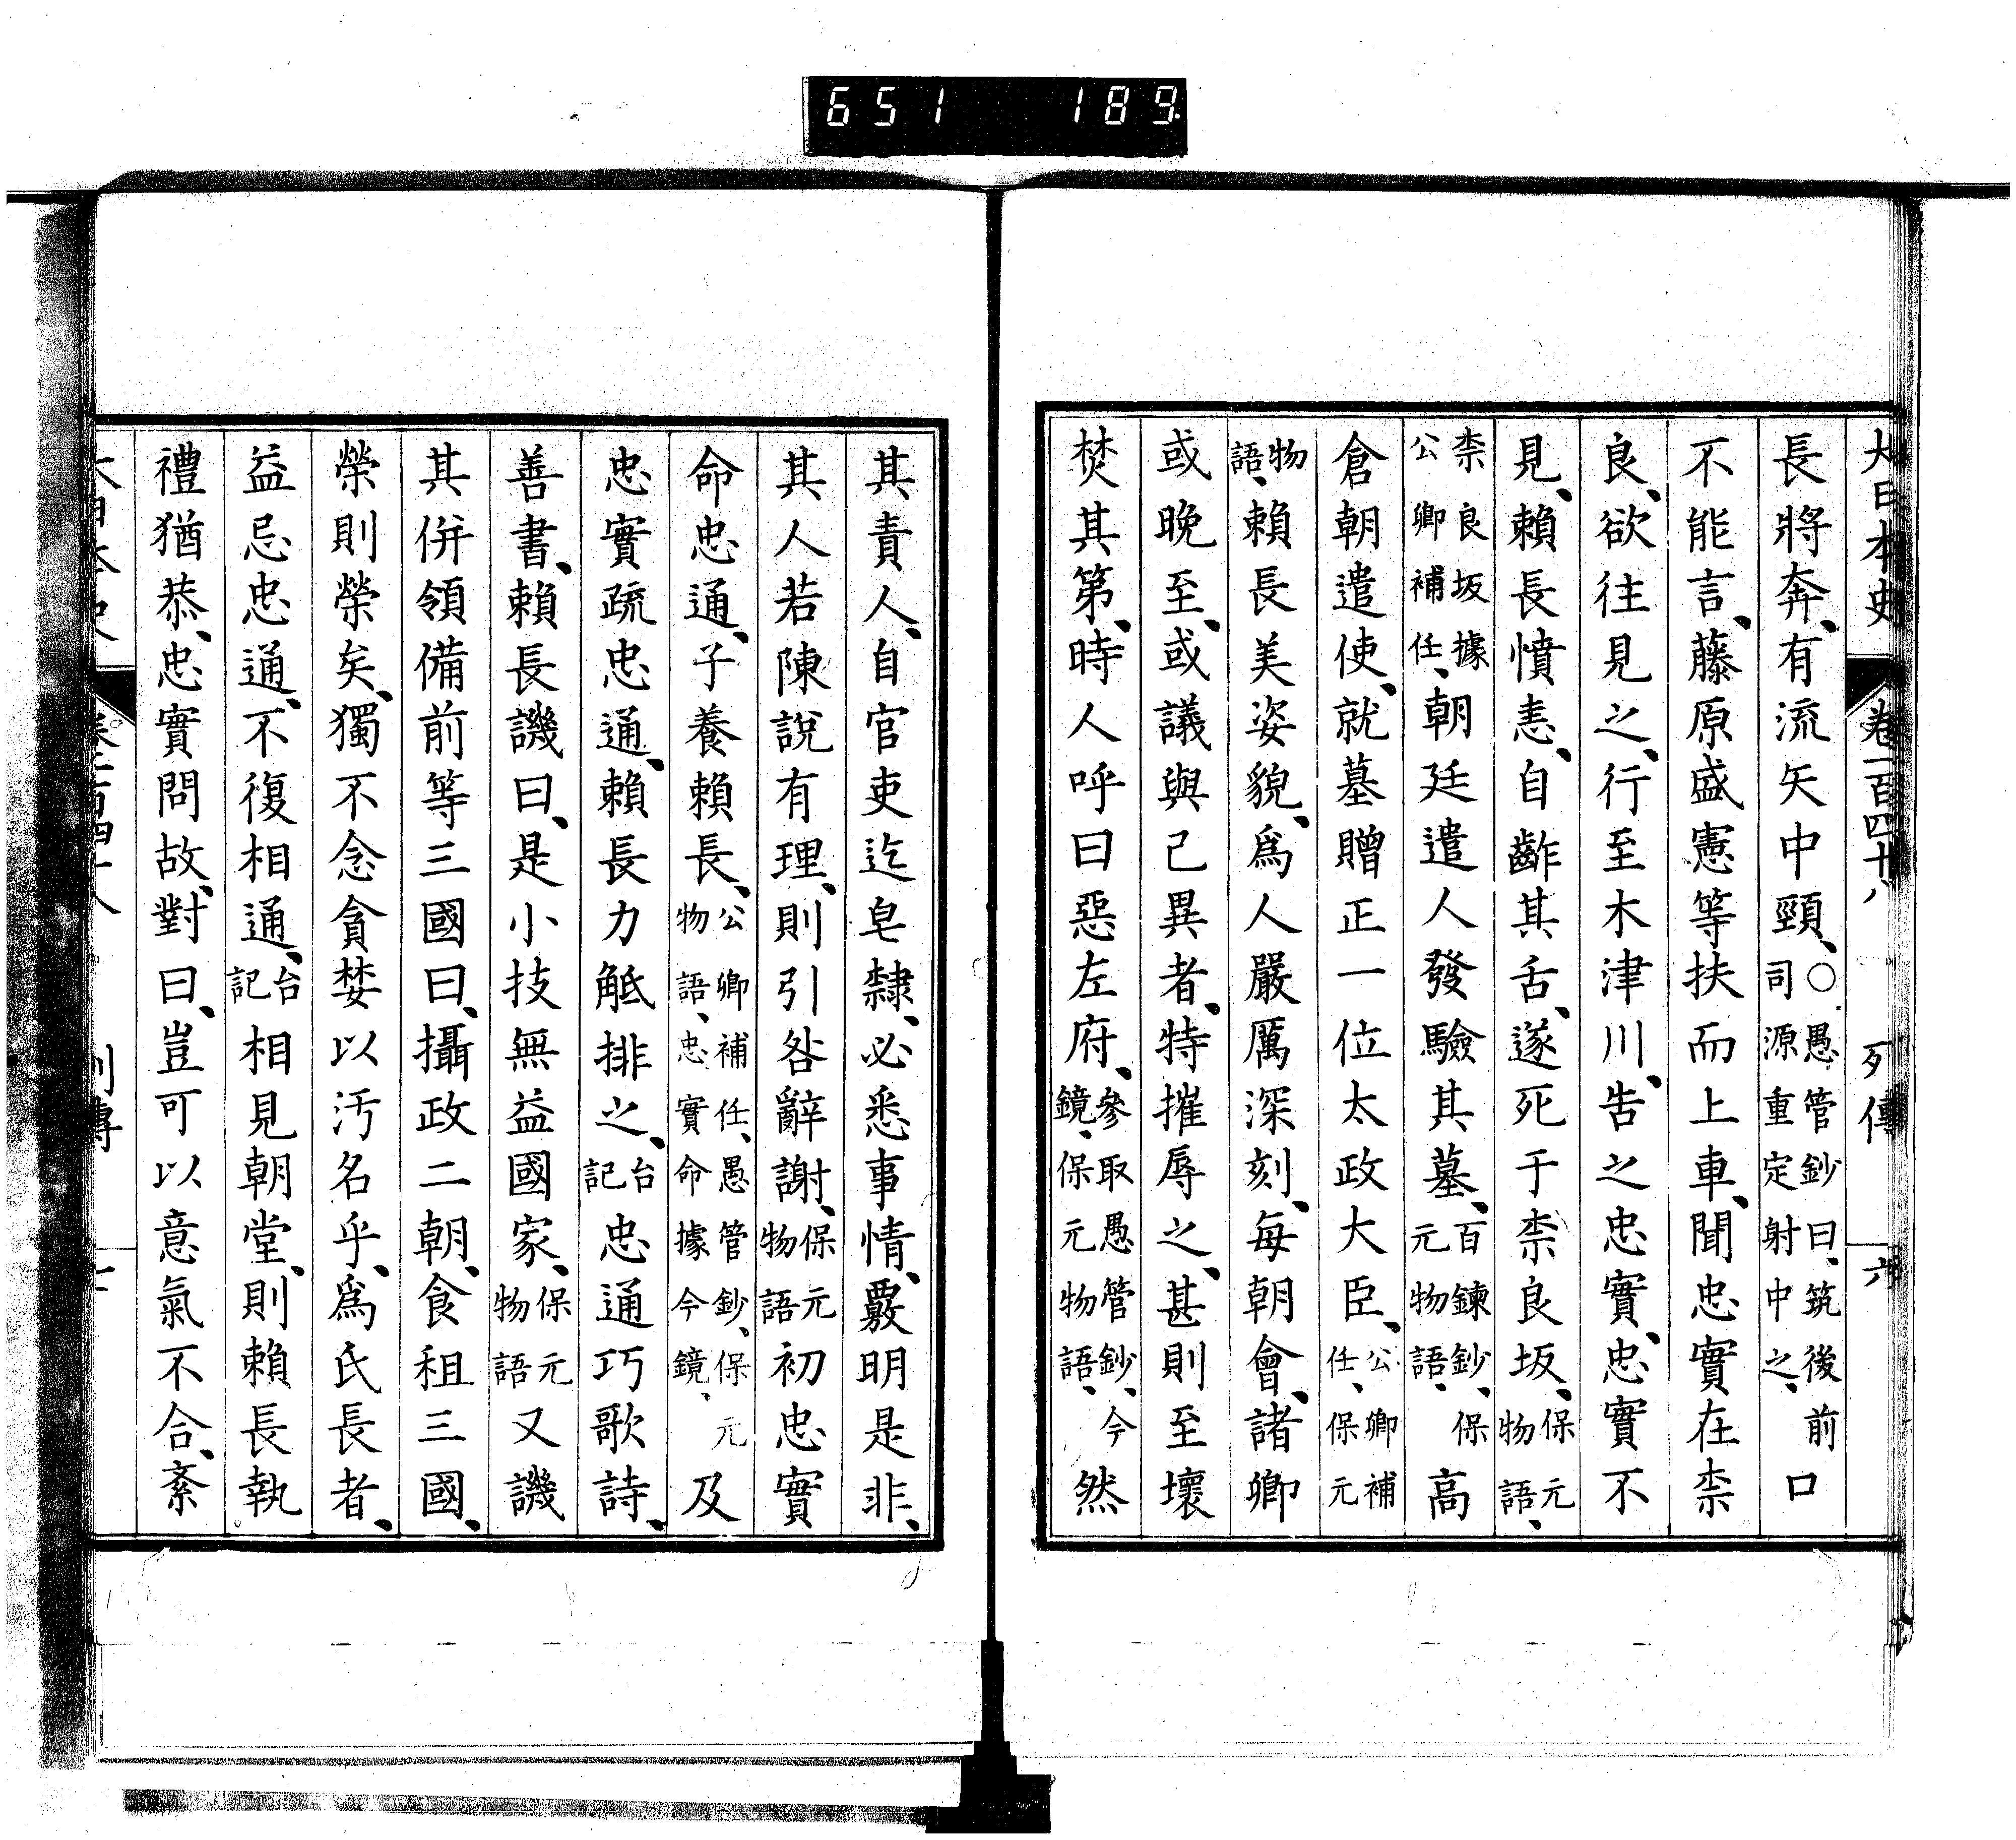 651 189
大日本史 卷一百四十八 列傳 六
長將奔、有流矢中頸、○愚管鈔曰、筑後前司源重定射中之、口
不能言、藤原盛憲等扶而上車、聞忠實在柰
良、欲往見之、行至木津川、告之忠實、忠實不
見、賴長憤恚、自齰其舌、遂死于柰良坂、保元物語、
柰良坂據公卿補任、朝廷遣人發驗其墓、百鍊鈔、保元物語、高
倉朝遣使、就墓贈正一位太政大臣、公卿補任、保元
物語、賴長美姿貌、爲人嚴厲深刻、每朝會、諸卿
或晚至、或議與己異者、特摧辱之、甚則至壞
焚其第、時人呼曰惡左府、參取愚管鈔、今鏡、保元物語、然
其責人、自官吏迄皂隸、必悉事情、覈明是非、
其人若陳說有理、則引咎辭謝、保元物語初忠實
命忠通、子養賴長、公卿補任、愚管鈔、保元物語、忠實命據今鏡、及
忠實疏忠通、賴長力觝排之、台記忠通巧歌詩、
善書、賴長譏曰、是小技無益國家、保元物語又譏
其併領備前等三國曰、攝政二朝、食租三國、
榮則榮矣、獨不念貪婪以汚名乎、爲氏長者、
益忌忠通、不復相通、台記相見朝堂、則賴長執
禮猶恭、忠實問故、對曰、豈可以意氣不合、紊